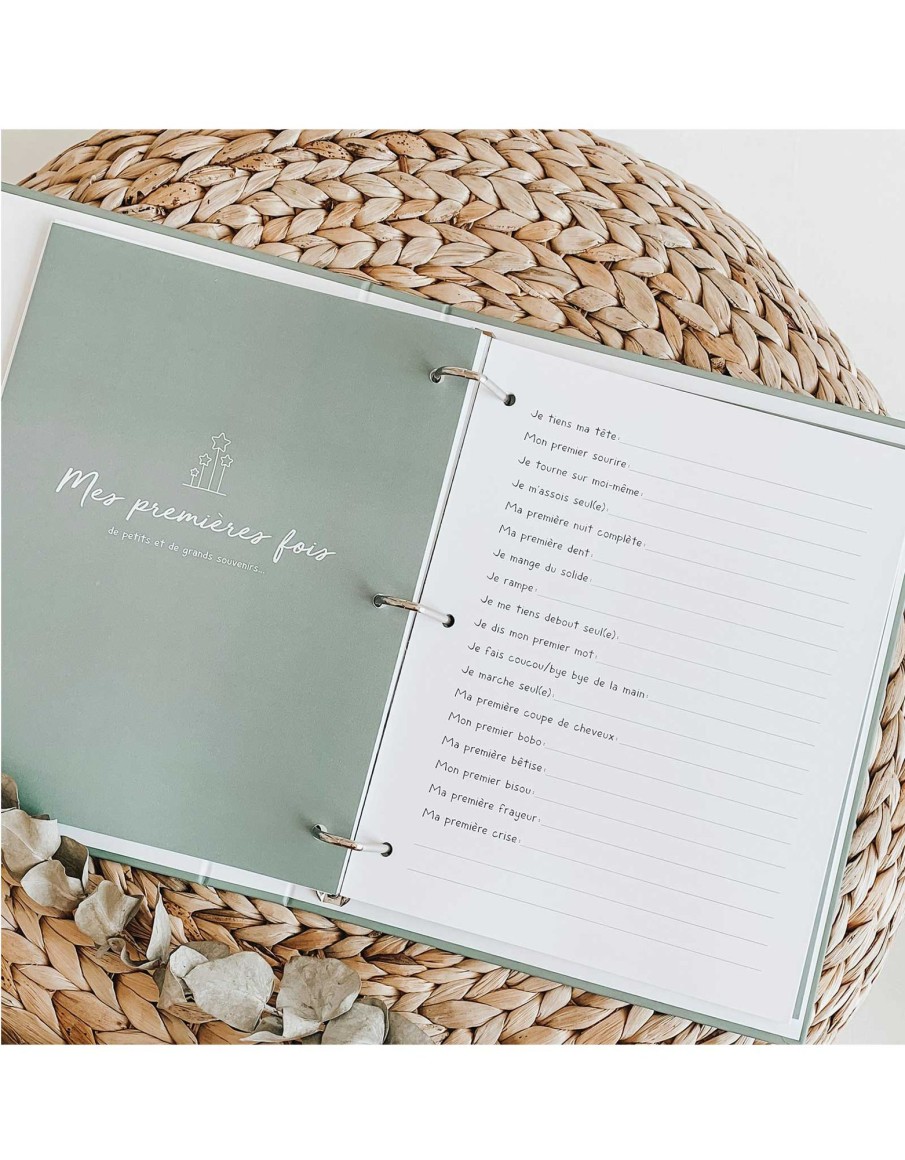 Mes premières fois
de petits et de grands souvenirs...
Je tiens ma tête:
Mon premier sourire:
Je tourne sur moi-même:
Je m'assois seul(e):
Ma première nuit complète:
Ma première dent:
Je mange du solide:
Je rampe:
Je me tiens debout seul(e):
Je dis mon premier mot:
Je fais coucou/bye bye de la main:
Je marche seul(e):
Ma première coupe de cheveux:
Mon premier bobo:
Ma première bêtise:
Mon premier bisou:
Ma première frayeur:
Ma première crise: